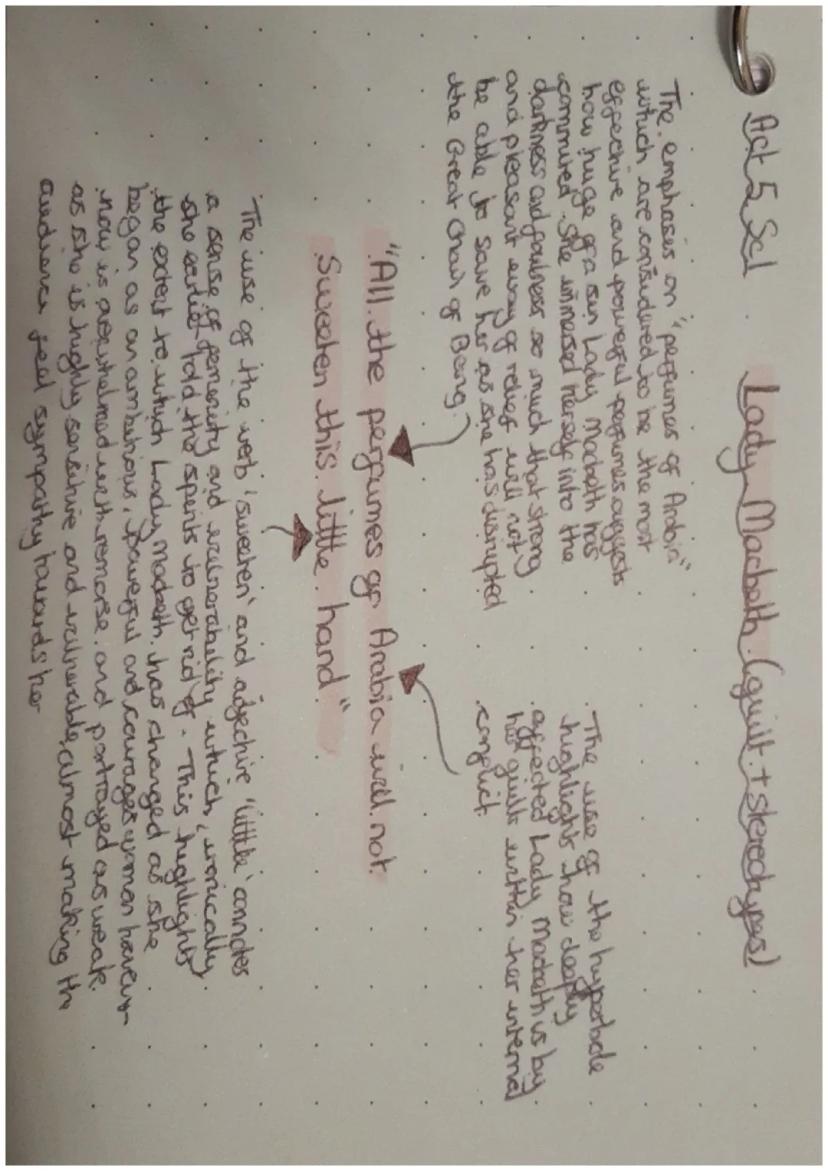 Act 5 Sc1 Lady Macbeth (guilt + stereotypes)
The emphases on "perfumes of Arabia"
which are considered to be the most
effective and powerful perfumes suggests
how huge of a sin Lady Macbeth has
commited. She immersed herself into the
darkness and foulness so much that strong
and pleasant way of relief will not
be able to save her as she has disrupted
the Great Chain of Being.
The use of the hyperbole
highlights how deeply
affected Lady Macbeth is by
her guilt within her internal
conflict.
"All the perfumes of Arabia will not
Sweeten this little hand"
The use of the verb 'sweeten' and adjective 'little' connotes
a sense of femininity and vulnerability which, ironically
she earlier told the spirits to get rid of. This highlights
the extent to which Lady Macbeth has changed as she
began as an ambitious, powerful and courages woman however
now is overwhelmed with remorse and portrayed as weak
as she is highly sensitive and vulnerable, almost making the
audience feel sympathy towards her